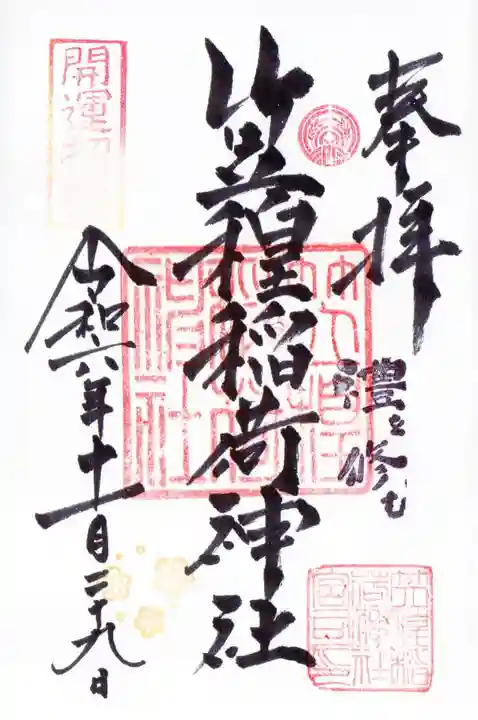 奉拝
禮を修む
笠䅣稲荷神社
令和六年十一月二十九日
開運招